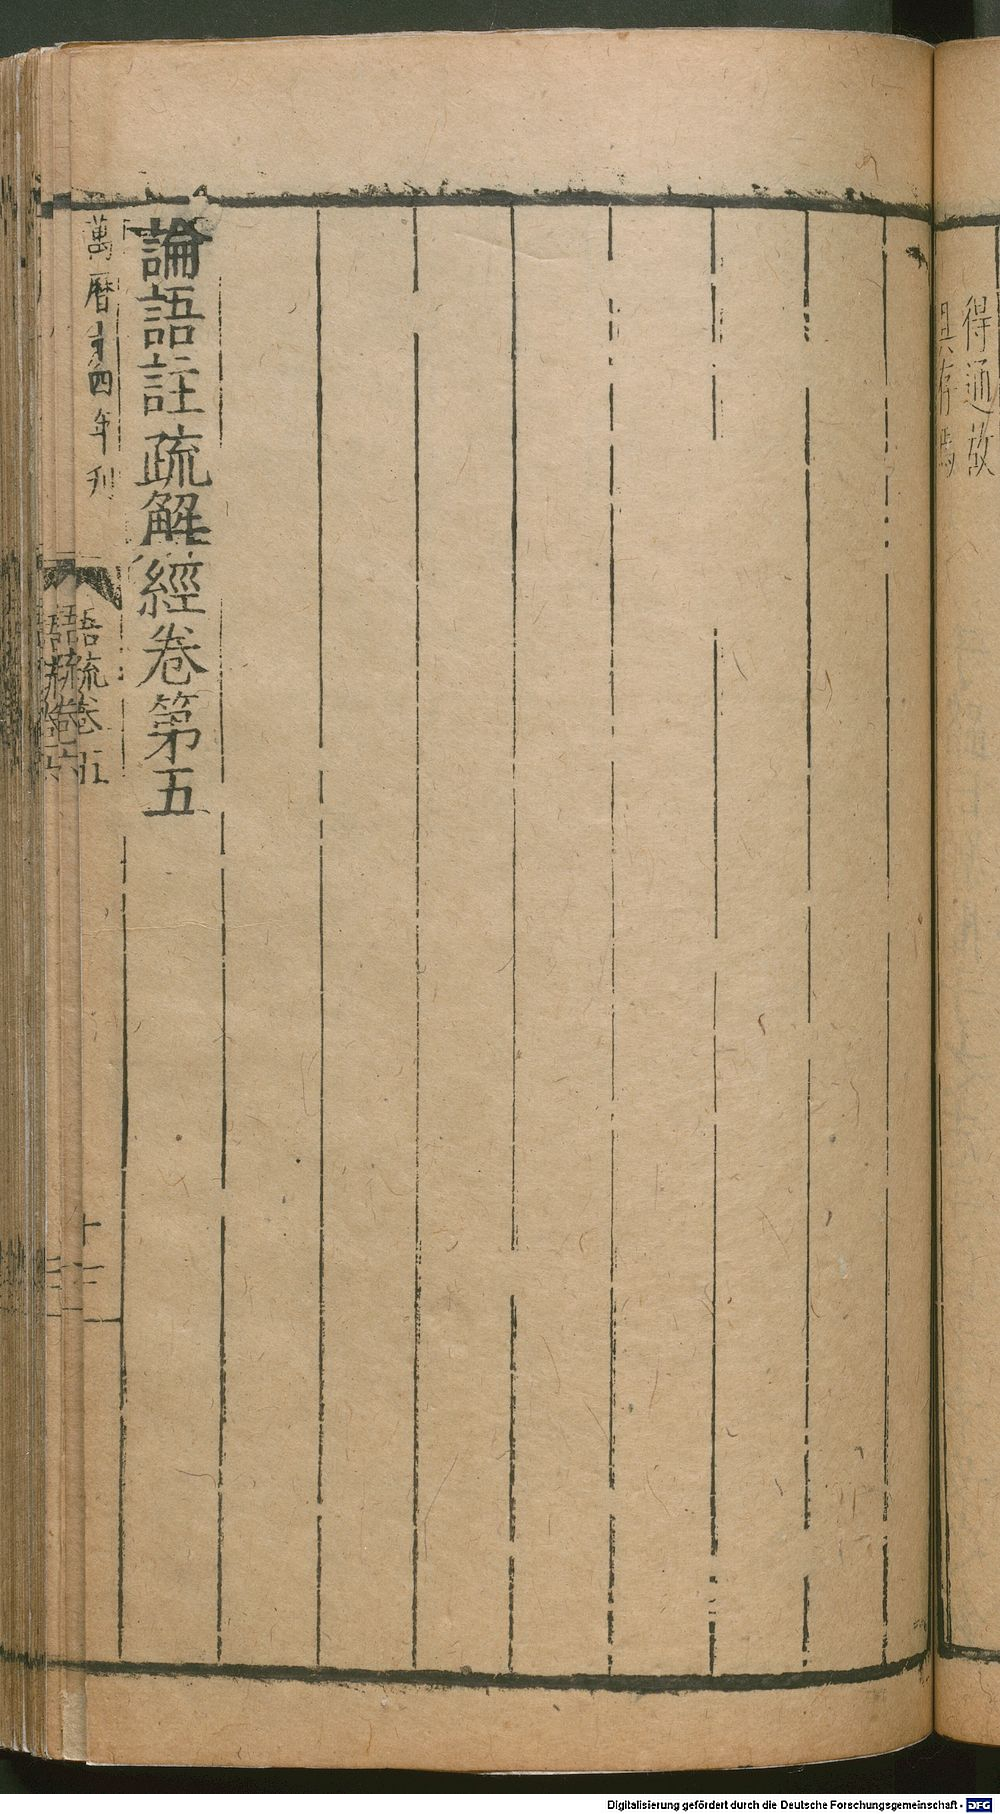 得通故
具存焉
論語註疏解經卷第五
萬曆十四年刊
語疏卷五
十三
語疏卷六
Digitalisierung gefördert durch die Deutsche Forschungsgemeinschaft - DFG